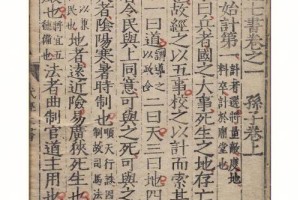 書卷之一 孫子卷上
始計第 計者選將量敵度地
料卒計於廟堂也
曰兵者國之大事死生之地存
故經之以五事校之以計而索其
一曰道 謂導之
以政令 二曰天三曰地四
令民與上同意可與之死可與之
者陰陽寒暑時制也 順天行誅因
制故司馬法
地者遠近險易廣狹死生也
將宜五
備也 法者曲制官道主用也